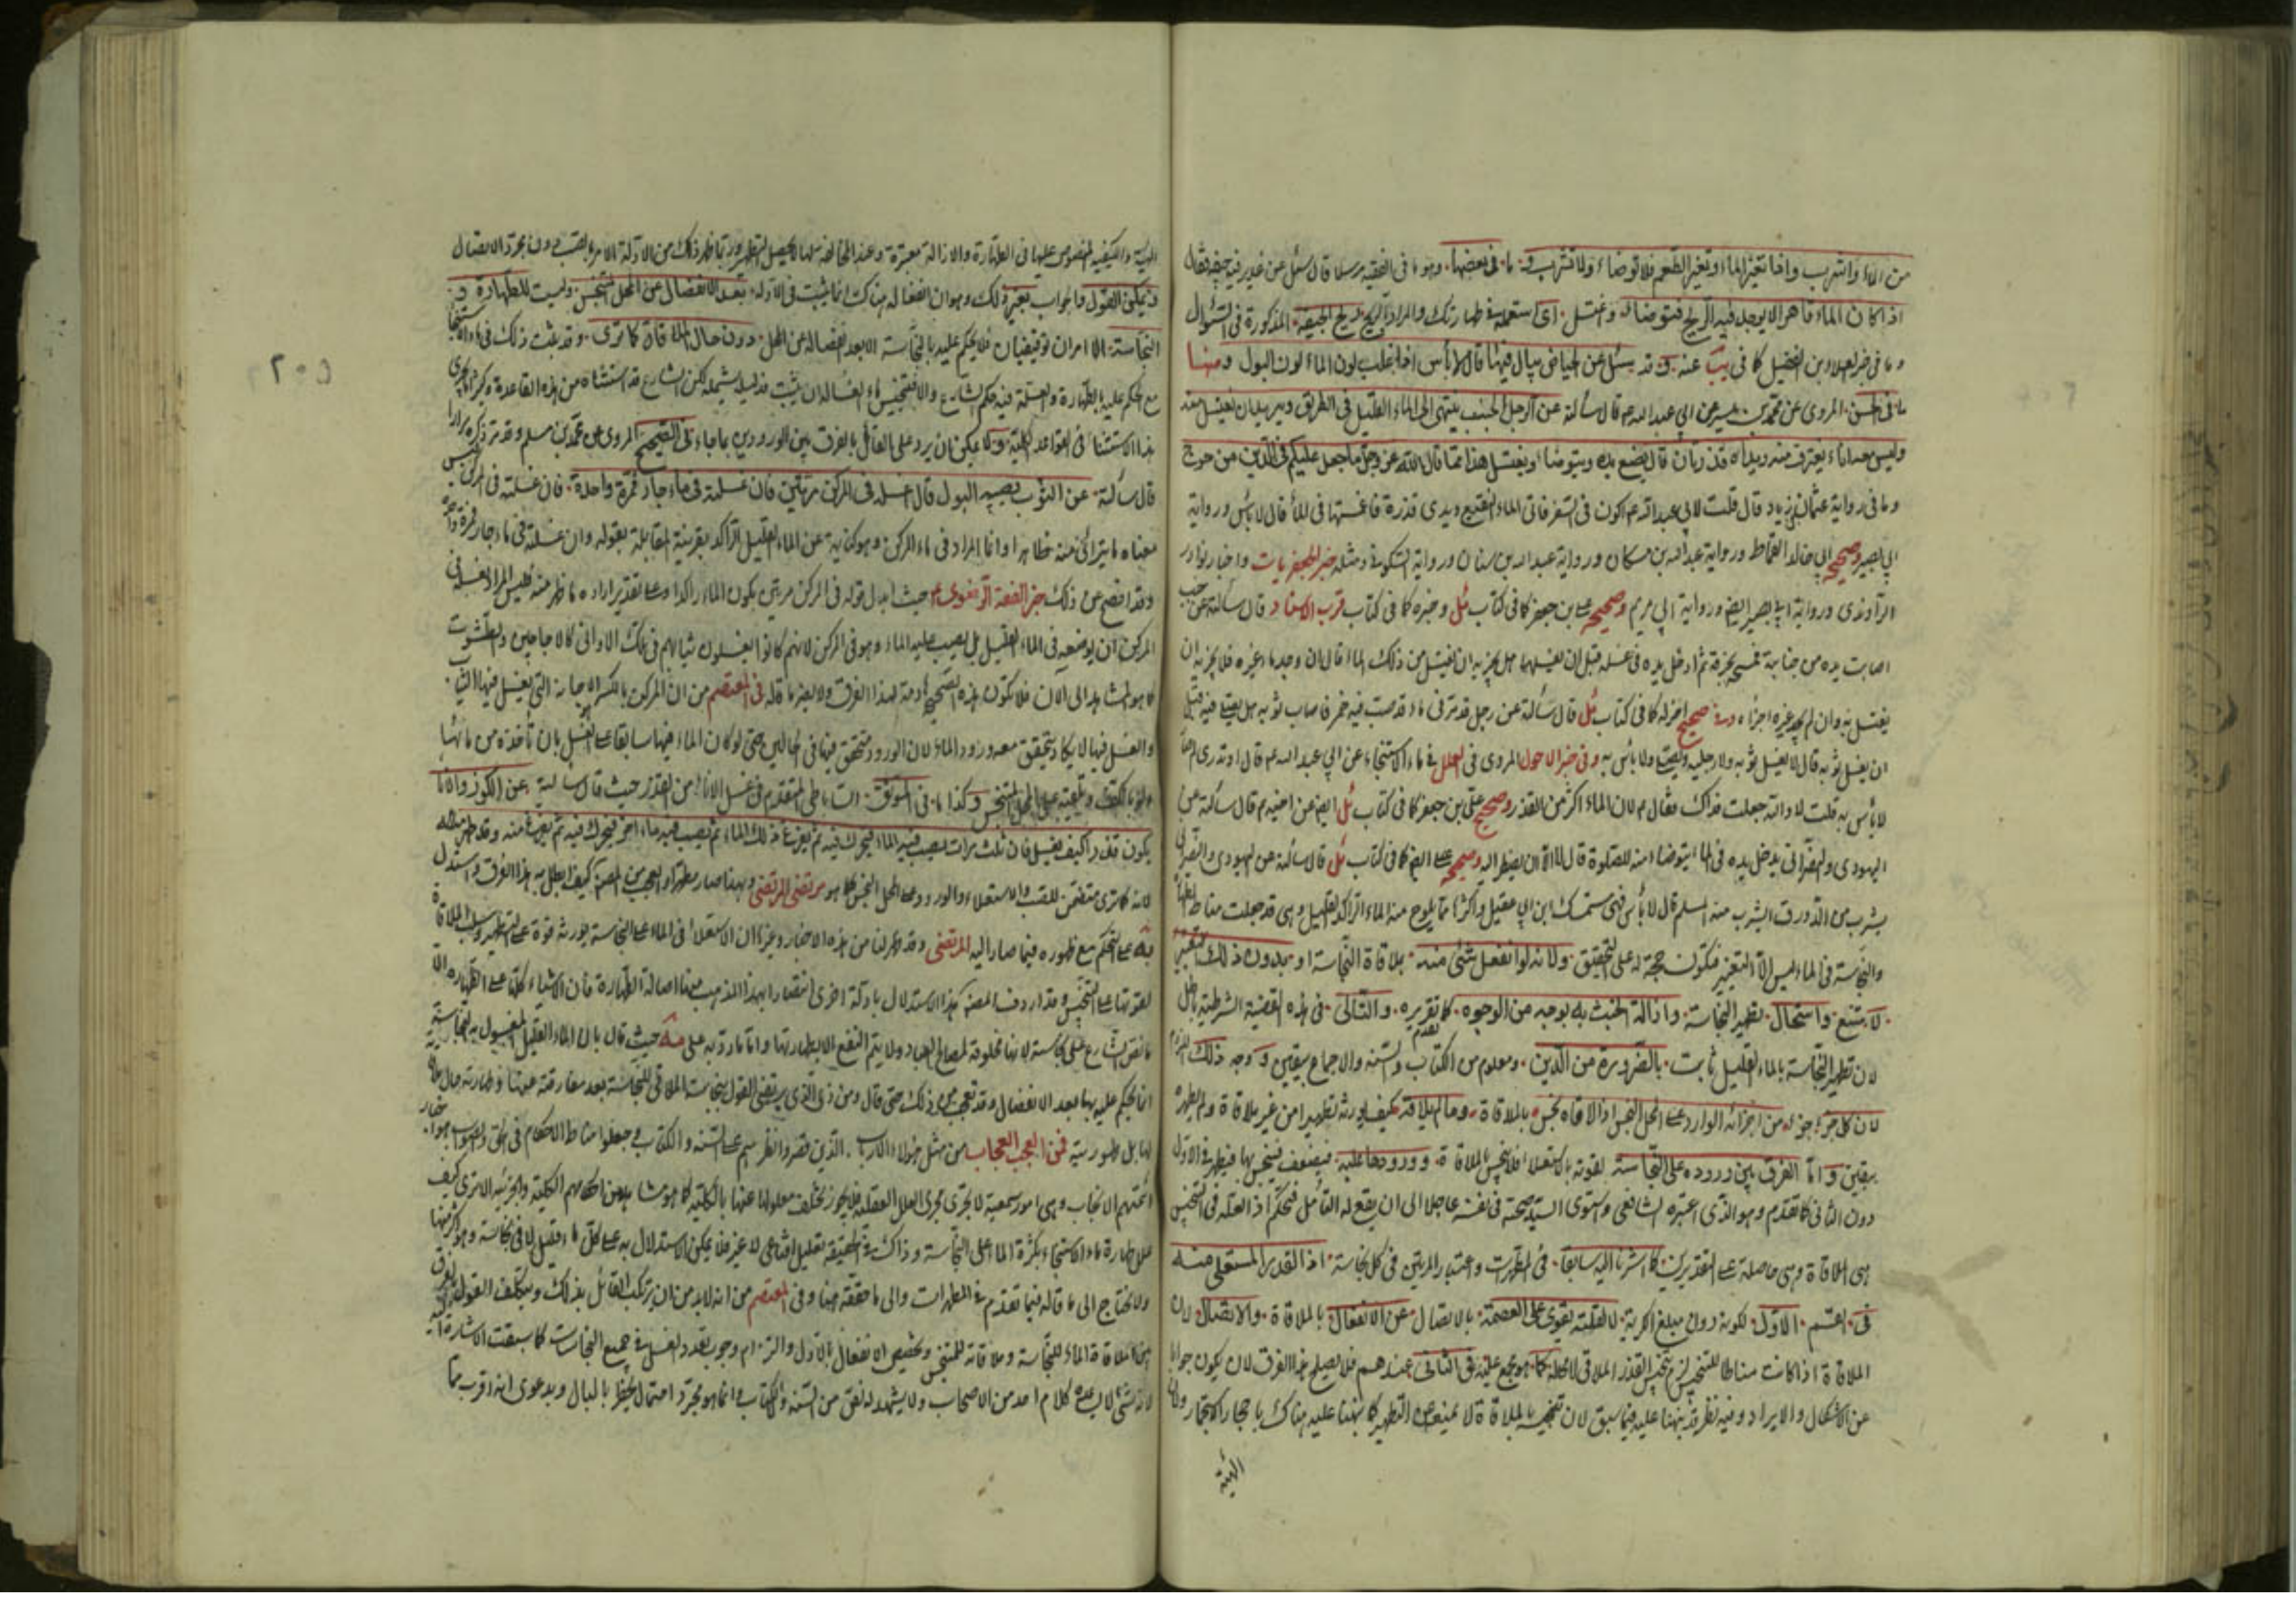 من الماء واشرب واذا تغير الماء او تغير الطعم فلا توضأ ولا تشرب و ما فى بعضها وهو ما فى الفقيه مرسلا قال سئل عن غدير فيه جيفة فقال
اذا كان الماء قاهرا لا يوجد فيه الريح فتوضأ واغتسل اى استعمله فى طهارتك والمراد بالريح ريح الجيفة المذكورة فى السؤال
وما فى خبر العلاء بن الفضيل كما فى يب عنه وقد سئل عن الحياض يبال فيها قال لا بأس اذا غلب لون الماء لون البول ومنها
ما فى الحسن المروى عن محمد بن ميسر عن ابي عبد الله ع قال سألته عن الرجل الجنب ينتهى الى الماء القليل فى الطريق ويريد ان يغتسل منه
وليس معه اناء يغترف منه ويداه قذرتان قال يضع يده ويتوضأ ويغتسل هذا مما قال الله عز وجل ما جعل عليكم فى الدين من حرج
وما فى رواية عثمان بن زياد قال قلت لابي عبد الله ع اكون فى السفر فاتى الماء النقيع ويدى قذرة فاغمسها فى الماء قال لا بأس ورواية
ابي بصير وصحيحة ابي خالد القماط ورواية عبد الله بن مسكان ورواية عبد الله بن سنان ورواية السكونى ومثله خبر الجعفريات واخبار نوادر
الراوندى ورواية ابي بصير ايضا ورواية ابي مريم وصحيحة على بن جعفر كما فى كتاب ئل وخبره كما فى كتاب قرب الاسناد قال سألته عن جنب
اصابت يده من جنابة فمسحه بخرقة ثم ادخل يده فى غسله قبل ان يغسلها هل يجزيه ان يغتسل من ذلك الماء قال ان وجد ماء غيره فلا يجزيه ان
يغتسل به وان لم يجد غيره اجزأه وفى صحيح اخر له كما فى كتاب ئل قال سألته عن رجل قد مر فى ماء قد صب فيه خمر فاصاب ثوبه هل يصلى فيه قبل
ان يغسل ثوبه قال لا يغسل ثوبه ولا رجليه ويصلى ولا بأس به وفى خبر الاحول المروى فى العلل فى ماء الاستنجاء عن ابي عبد الله ع قال اوتدرى لم
لا بأس به قلت لا والله جعلت فداك فقال م لان الماء اكثر من القذر وصحيح على بن جعفر كما فى كتاب ئل ايضا عن اخيه م قال سألته عن
اليهودى والنصرانى يدخل يده فى الماء ايتوضأ منه للصلوة قال لا الا ان يضطر اليه وصحيحه ايضا كما فى كتاب ئل قال سألته عن اليهودى والنصرانى
يشرب من الدورق ايشرب منه المسلم قال لا بأس فهى مستمسك ابن ابي عقيل واكثرها مما يلوح منه الماء الراكد القليل وهى قد جعلت مناط الطهارة
والنجاسة فى الماء ليس الا التغير فتكون حجة له على التحقيق ولانه لو انفعل بشئ منه بملاقاة النجاسة او بدون ذلك التغير
لامتنع واستحال تطهير النجاسة وازالة الخبث به بوجه من الوجوه كما تقدم تقريره والتالى فى هذه القضية الشرطية باطل
لان تطهير النجاسة بالماء القليل ثابت بالضرورة من الدين ومعلوم من الكتاب والسنة والاجماع بيقين ووجه ذلك اللزوم
لان كل جزء جزء من اجزائه الواردة على المحل النجس اذا لاقاه نجس بالملاقاة وما لم يلاقه فكيف يورثه تطهيرا من غير ملاقاة ولم يطهره
بيقين واما الفرق بين وروده على النجاسة لقوته بالاستعلاء فلا ينجس بالملاقاة وورودها عليه فيضعف فينجس بها فيطهر فى الاول
دون الثانى كما تقدم وهو الذى اعتبره الشافعى واستوى السيد صحته فى نفسه عاجلا الى ان يقع له التأمل فتحكم اذ العلة فى التنجيس
هى الملاقاة وهى حاصلة على التقديرين كما اشرنا اليه سابقا فى المطهرات واعتبار المرتين فى كل نجاسة اذ القدر المستعلى منه
فى القسم الاول لكونه دون مبلغ الكرية لا لقلته يقوى على العصمة بالاتصال عن الانفعال بالملاقاة والاتصال لان
الملاقاة اذا كانت مناطا للتنجيس لزم تنجس القذر الملاقى لا محالة كما هو مجمع عليه فى الثانى عندهم فلا يصلح هذا الفرق لان يكون جوابا
عن الاشكال والايراد وفيه نظر قد نبهنا عليه فيما سبق لان تنجيسه بالملاقاة لا يمنع من التطهير كما نبهنا عليه هناك باحجار الاستجمار
الهيئة
٢٠٥
والكيفية المنصوص عليها فى الطهارة والازالة معتبرة وعند المخالفة لها لا يحصل التطهير وربما ظهر ذلك من الادلة الامرة بالصب دون مجرد الاتصال
ويمكن القول والجواب بغير ذلك وهو ان انفعاله هناك انما يثبت فى الادلة بعد الانفصال عن المحل متنجس وليست للطهارة و
النجاسة الا امران توقيفيان فلا يحكم عليه بالنجاسة الا بعد انفصاله عن المحل دون حال الملاقاة كما ترى وقد يثبت ذلك فى ماء الاستنجاء
مع الحكم عليه بالطهارة والعلة فيه حكم الشارع والا فتنجيس ماء الغسالة ان يثبت فدليله يشمله لكن الشارع قد استثناه من هذه القاعدة
هذا الاستثناء فى القواعد الكلية ولا يمكن ان يرد على القائل بالفرق بين الورودين بما جاء فى الصحيح المروى عن محمد بن مسلم وقد مر ذكره مرارا
قال سألته عن الثوب يصيبه البول قال اغسله فى المركن مرتين فان غسلته فى ماء جار فمرة واحدة فان غسلته فى المركن ليس
معناه ما يتراءى منه ظاهرا وانما المراد فى ماء المركن وهو كناية عن الماء القليل الراكد بقرينة المقابلة بقوله وان غسلته فى ماء جار فمرة واحدة
وقد افصح عن ذلك خبر الفقه الرضوى حيث ابدل قوله فى المركن مرتين بكون الماء راكدا وعلى تقدير ارادة ما ظهر منه فليس المراد بغسله فى
المركن ان يوضع فى الماء القليل بل يصب عليه الماء وهو فى المركن لانهم كانوا يغسلون ثيابهم فى تلك الاوانى كالاجاجين والطشوت
كما هو المشاهد الى الآن فلا تكون هذه الصحيحة هادمة لهذا الفرق ولا يعتبر ما قاله فى المعتصم من ان المركن بالكسر الاجانة التى يغسل فيها الثياب
والغسل فيها لا يكاد يتحقق معه ورود الماء لان الورود متحقق فيها فى الحالين حتى لو كان الماء فيها سابقا على الغسل بان تأخذه من مائها
ولو بالكف وتلقيه على المحل المتنجس وكذا ما فى الموثق الساباطى المتقدم فى غسل الاناء من القذر حيث قال سألته عن الكوز والاناء
يكون قذرا كيف يغسل قال ثلث مرات يصب فيه الماء فيحرك فيه ثم يفرغ ذلك الماء ثم يصب فيه ماء اخر فيحرك فيه ثم يفرغ منه وقد طهر
لانه كما ترى متضمن للصب والاستعلاء والورود على المحل النجس كما هو مرتضى المرتضى وبهذا صار مطهرا والعجب من المصنف كيف ابطل به هذا الفرق واستدل
به على التحكم مع ظهوره فيما صار اليه المرتضى وقد ظهر لنا من هذه الاخبار وغيرها ان الاستعلاء فى الماء على النجاسة يورثه قوة على التطهير
لقوتها على التنجيس وقد اردف المصنف لهذا الاستدلال بادلة اخرى انتصارا بهذا المذهب منها اصالة الطهارة فان الاشياء كلها على الطهارة الا
ما نص الشارع على نجاسته لانها مخلوقة لمصالح العباد ولا يتم النفع الا بطهارتها واما ما رد به على حيث قال بان الماء القليل المغسول به النجاسة
انما يحكم عليه بها بعد الانفصال وقد تعجب من ذلك حتى قال ومن ذا الذى يرتضى القول بنجاسة الملاقى للنجاسة بعد مفارقته عنها وطهارته حال
لها بل طهوريته فمن العجب العجاب من مثل هؤلاء الذين قصروا نظرهم على السنة والكتاب وجعلوا مناط الاحكام فى الحق والصواب
ائمتهم الانجاب وهى امور سمعية لا تجرى مجرى العلل العقلية فلا يجوز تخلف معلولها عنها بالكلية كما هو مشاهد من احكامهم الكلية والجزئية الا ترى كيف
علل طهارة ماء الاستنجاء بكثرة الماء على النجاسة وذاك فى الحقيقة تعليل اقناعى لا غير فلا يمكن الاستدلال به على كل ماء قليل لاقى نجاسة وهو اكثر منها
ولا نحتاج الى ما قاله فيما تقدم فى المطهرات والى ما حققه هنا وفى المعتصم من انه لا بد من ان يرتكب القائل بذلك ويتكلف القول
بين ملاقاة الماء للنجاسة وملاقاته للمتنجس وتخصيص الانفعال بالاول والتزام وجوب تعدد الغسل فى جميع النجاسات كما سبقت الاشارة اليه
لانه شئ لا يساعده كلام احد من الاصحاب ولا يشهد له نص من السنة والكتاب وانما هو مجرد احتمال يخطر بالبال وبدعوى انه اقرب مما